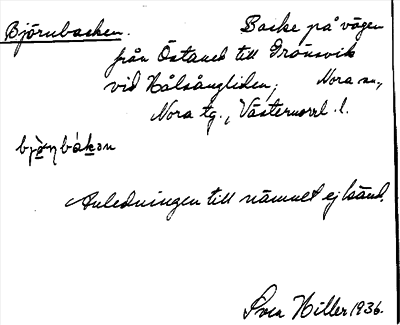 Björnbacken. Backe på vägen
från Östanö till Grönsvik
vid Hålsångliden, Nora sn,
Nora tg., Västernorrl. l.
bjö̀ṇbákən
Anledningen till namnet ej känd.
Hiller 1936.